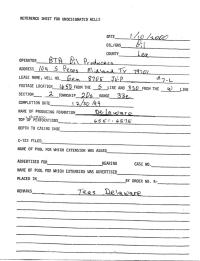 REFERENCE SHEET FOR UNDESIGNATED WELLS
DATE 1/10/2000
OIL/GAS Oil
COUNTY Lea
OPERATOR BTA Oil Producers
ADDRESS 104 S Pecos Midland TX 79701
LEASE NAME, WELL NO. Gem 8705 JV-P #7-L
FOOTAGE LOCATION, 1650 FROM THE S LINE AND 330 FROM THE W LINE
SECTION TOWNSHIP 20s RANGE 33e
COMPLETION DATE 12/30/99
NAME OF PRODUCING FORMATION Delaware
TOP OF PERFORATIONS
DEPTH TO CASING SHOE
C-123 FILED
NAME OF POOL FOR WHICH EXTENSION WAS ASKED
ADVERTISED FOR HEARING CASE NO.
NAME OF POOL FOR WHICH EXTENSION WAS ADVERTISED
PLACED IN BY ORDER NO. R-
REMARKS Teas Delaware